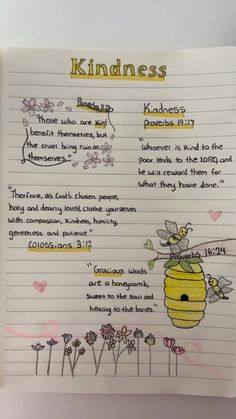 Kindness
Proverbs 11:17
"Those who are kind
benefit themselves, but
the cruel bring ruin on
themselves."
Kindness
Proverbs 19:17
"Whoever is kind to the
poor lends to the LORD, and
he will reward them for
what they have done."
"Therfore, as God's chosen people,
holy and dearly loved, clothe yourselves
with compassion, kindness, humility,
gentleness and patience"
Colossians 3:12
Proverbs 16:24
"Gracious words
are a honeycomb,
sweet to the soul and
healing to the bones."